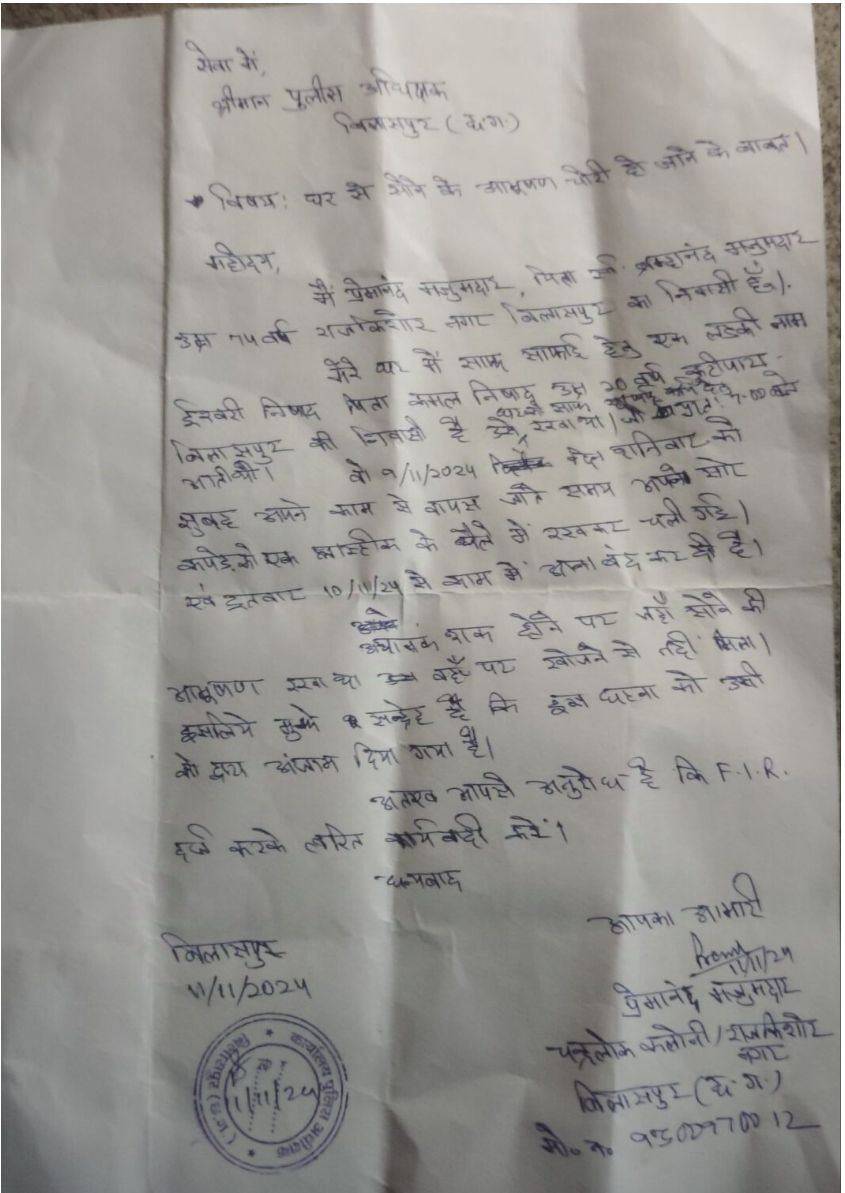 सेवा में,
श्रीमान पुलीस अधिक्षक
बिलासपुर (छ.ग.)
विषय: घर से सोने के आभूषण चोरी हो जाने के बाबत।
महोदय,
मैं प्रेमानंद मजुमदार, पिता स्व. ब्रम्हानंद मजुमदार
उम्र 74 वर्ष राजकिशोर नगर बिलासपुर का निवासी हूँ।
मेरे घर में साफ सफाई हेतु एक लडकी नाम
ईश्वरी निषाद पिता कमल निषाद उम्र 20 वर्ष
बिलासपुर की निवासी है उसे रखा था।
आती थी। वो 9/11/2024 शनिवार को
सुबह अपने काम से वापस जाते समय अपने
कपड़े को एक प्लास्टीक के थैले में रखकर चली गई।
एवं इतवार 10/11/24 से काम में आना बंद कर दी है।
अचानक शक होने पर जहाँ सोने की
आभूषण रखा था वहाँ पर खोजने से नहीं मिला।
इसलिये मुझे सन्देह है कि इस घटना को उसी
के द्वारा अंजाम दिया गया है।
अतएव आपसे अनुरोध है कि F.I.R.
दर्ज करके त्वरित कार्यवाही करें।
धन्यवाद
आपका आभारी
11/11/24
प्रेमानंद मजुमदार
चन्द्रलोक कलोनी/राजकिशोर
नगर
बिलासपुर (छ.ग.)
मो. न.
बिलासपुर
11/11/2024
कार्यालय पुलिस अधीक्षक
बिलासपुर (छ.ग.)
11/11/24